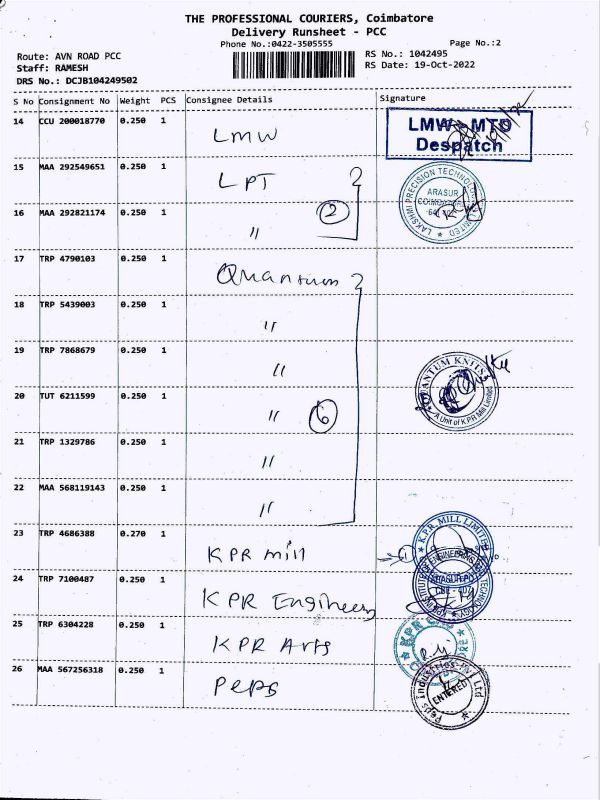 THE PROFESSIONAL COURIERS, Coimbatore
Delivery Runsheet - PCC
Phone No.:0422-3505555 Page No.:2
Route: AVN ROAD PCC RS No.: 1042495
Staff: RAMESH RS Date: 19-Oct-2022
DRS No.: DCJB104249502
S No Consignment No Weight PCS Consignee Details Signature
14 CCU 200018770 0.250 1 LMW
LMW - MTD
Despatch
15 MAA 292549651 0.250 1 LPT
LAKSHMI PRECISION TECHNOLOGIES LIMITED
ARASUR
COIMBATORE
16 MAA 292821174 0.250 1 〃 2
17 TRP 4790103 0.250 1 Quantum
18 TRP 5439003 0.250 1 〃
19 TRP 7868679 0.250 1 〃
QUANTUM KNITS
A Unit of K.P.R Mill Limited
20 TUT 6211599 0.250 1 〃 6
21 TRP 1329786 0.250 1 〃
22 MAA 568119143 0.250 1 〃
23 TRP 4686388 0.270 1 KPR mill 1
K.P.R. MILL LIMITED
24 TRP 7100487 0.250 1 KPR Engineers
25 TRP 6304228 0.250 1 KPR Arts
26 MAA 567256318 0.250 1 Peps
Peps Industries Pvt Ltd
ENTERED